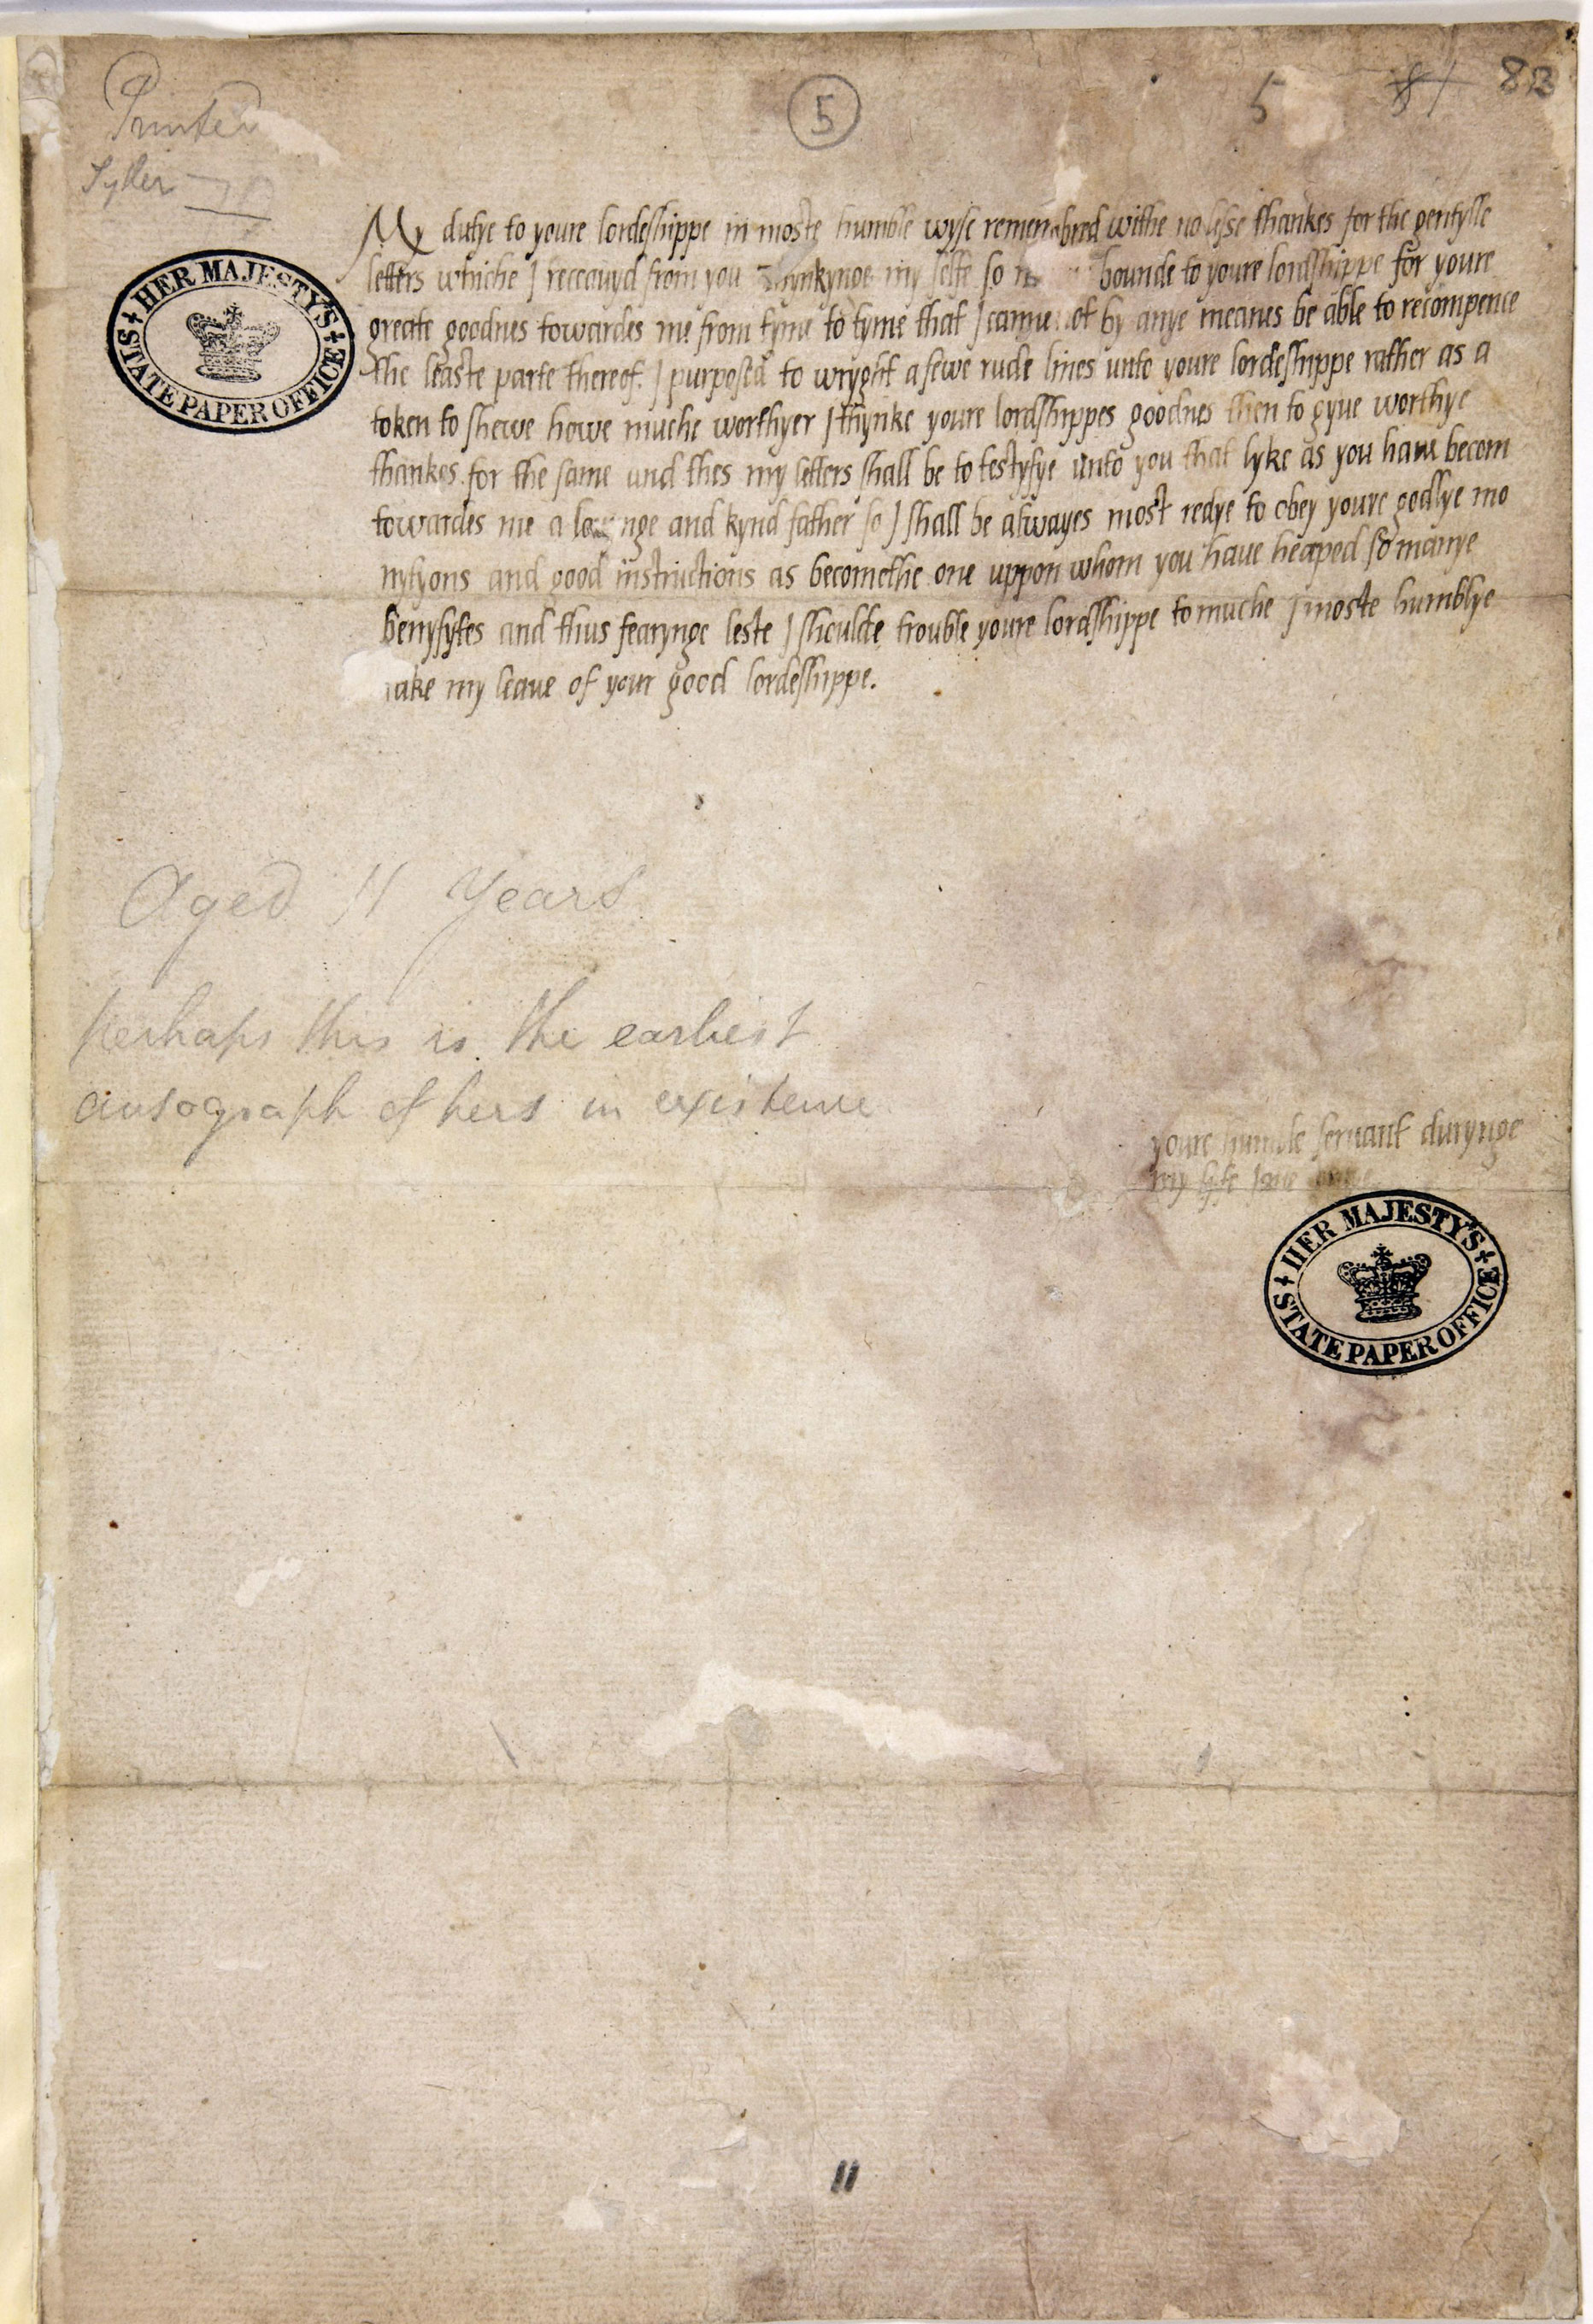 Printed
Tytler
5
5
81
83
HER MAJESTY'S
STATE PAPER OFFICE
My dutye to youre lordeshippe in moste humble wyse remembred withe no lesse thankes for the gentylle
letters whiche I receauyd from you Thynkynge my selfe so bounde to youre lordshippe for youre
greate goodnes towardes me from tyme to tyme that I cannenot by anye meanes be able to recompence
the leaste parte thereof. I purposed to wryght a fewe rude lines unto youre lordeshippe rather as a
token to shewe howe muche worthyer I thynke youre lordshippes goodnes then to gyue worthye
thankes for the same and thes my letters shall be to testyfye unto you that lyke as you haue becom
towardes me a louynge and kynd father so I shall be alwayes most redye to obey youre godlye mo
nytyons and good instructions as becomethe one uppon whom you have heaped so manye
benyfytes and thus fearynge leste I shoulde trouble youre lordshippe to muche I moste humblye
take my leaue of your good lordeshippe.
Aged 11 Years
perhaps this is the earliest
autograph of hers in existence
youre humble seruant durynge
my lyfe Jane
HER MAJESTY'S
STATE PAPER OFFICE